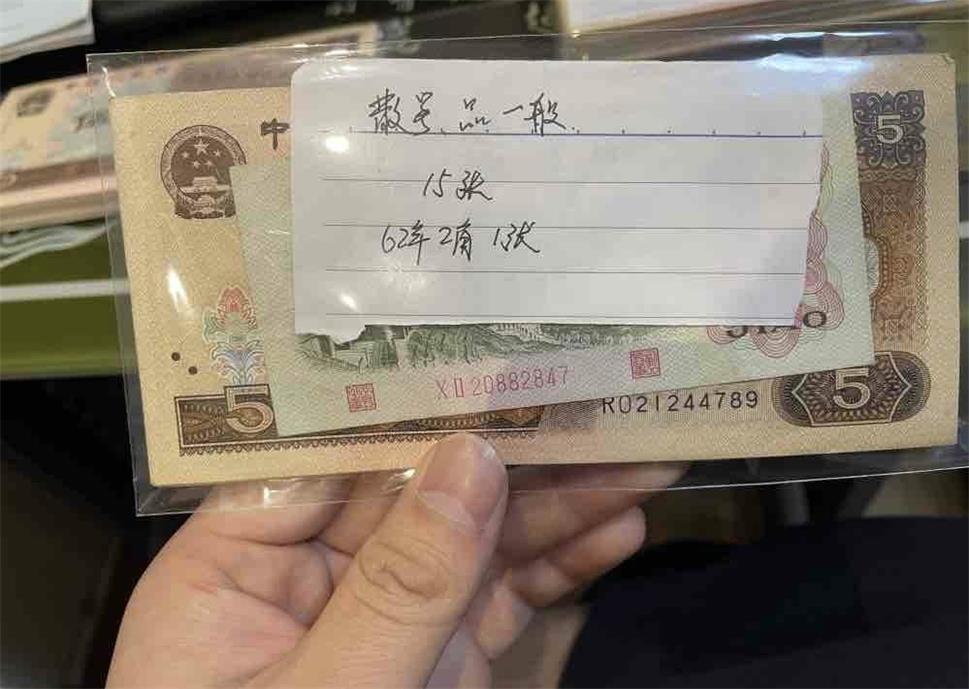 散号.品一般.
15张
62年2角1张
中
5
5
XⅡ20882847
R021244789
5